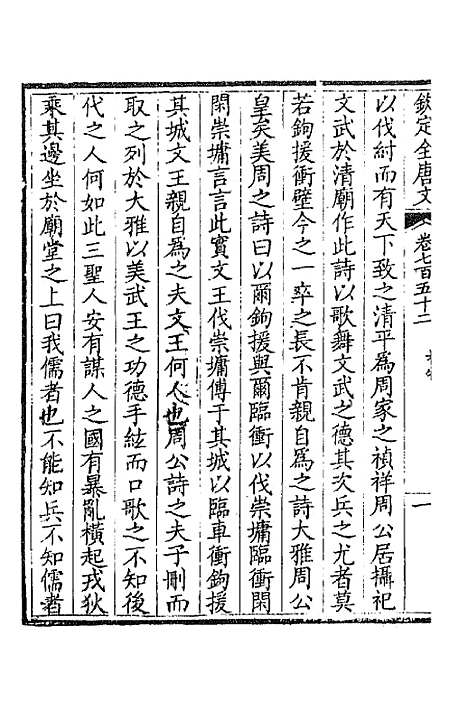 欽定全唐文 卷七百五十二 杜牧 一
以伐紂而有天下致之清平為周家之禎祥周公居攝祀
文武於清廟作此詩以歌舞文武之德其次兵之尤者莫
若鉤援衝壁今之一卒之長不肯親自為之詩大雅周公
皇矣美周之詩曰以爾鉤援與爾臨衝以伐崇墉臨衝閑
閑崇墉言言此實文王伐崇墉傅于其城以臨車衝鉤援
其城文王親自為之夫文王何人也周公詩之夫子刪而
取之列於大雅以美武王之功德手絃而口歌之不知後
代之人何如此三聖人安有謀人之國有暴亂橫起戎狄
乘其邊坐於廟堂之上曰我儒者也不能知兵不知儒者